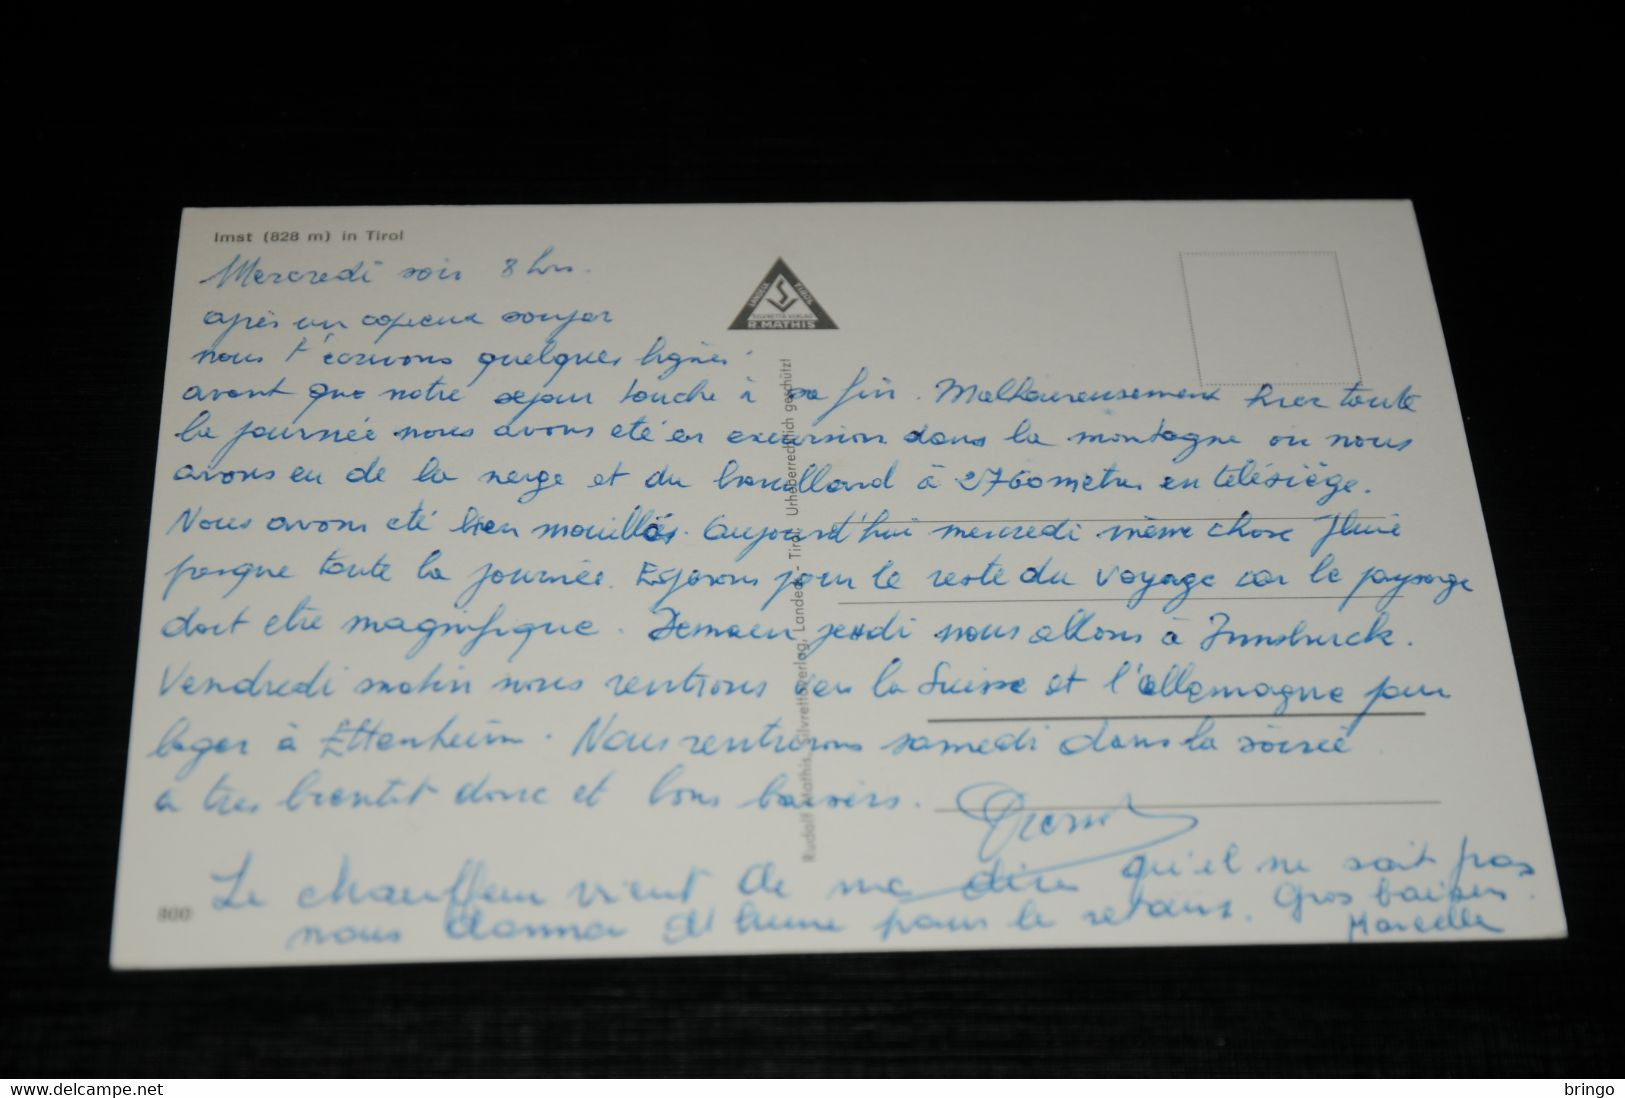 Imst (828 m) in Tirol
Mercredi soir 8 hrs.
après un copieux souper
nous t'écrivons quelques lignes
avant que notre sejour touche à sa fin. Malheureusement hier toute
la journée nous avons été en excursion dans la montagne ou nous
avons eu de la neige et du brouillard à 2760 metres en télésiège.
Nous avons été bien mouillés. Aujourd'hui mercredi même chose pluie
presque toute la journée. Espérons pour le reste du voyage car le paysage
doit etre magnifique. Demain jeudi nous allons à Innsbruck.
Vendredi matin nous rentrons vers la Suisse et l'allemagne pour
loger à Ettenheim. Nous rentrerons samedi dans la soirée
a tres bientot donc et bons baisers.
Le chauffeur vient de me dire qu'il ne sait pas
nous donner d'heure pour le retour. Gros baisers.
Marcelle
800
LANDECK TIROL
SILVRETTA VERLAG
R. MATHIS
Rudolf Mathis, Silvrettaverlag, Landeck - Tirol Urheberrechtlich geschützt
bringo
www.delcampe.net